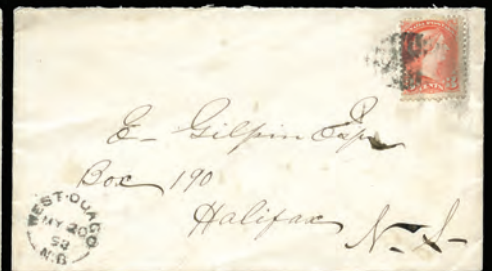 E- Gilpin Esqr
Box 190
Halifax
N. S-
WEST-QUACO
MY 20
93
N.B
CENTS